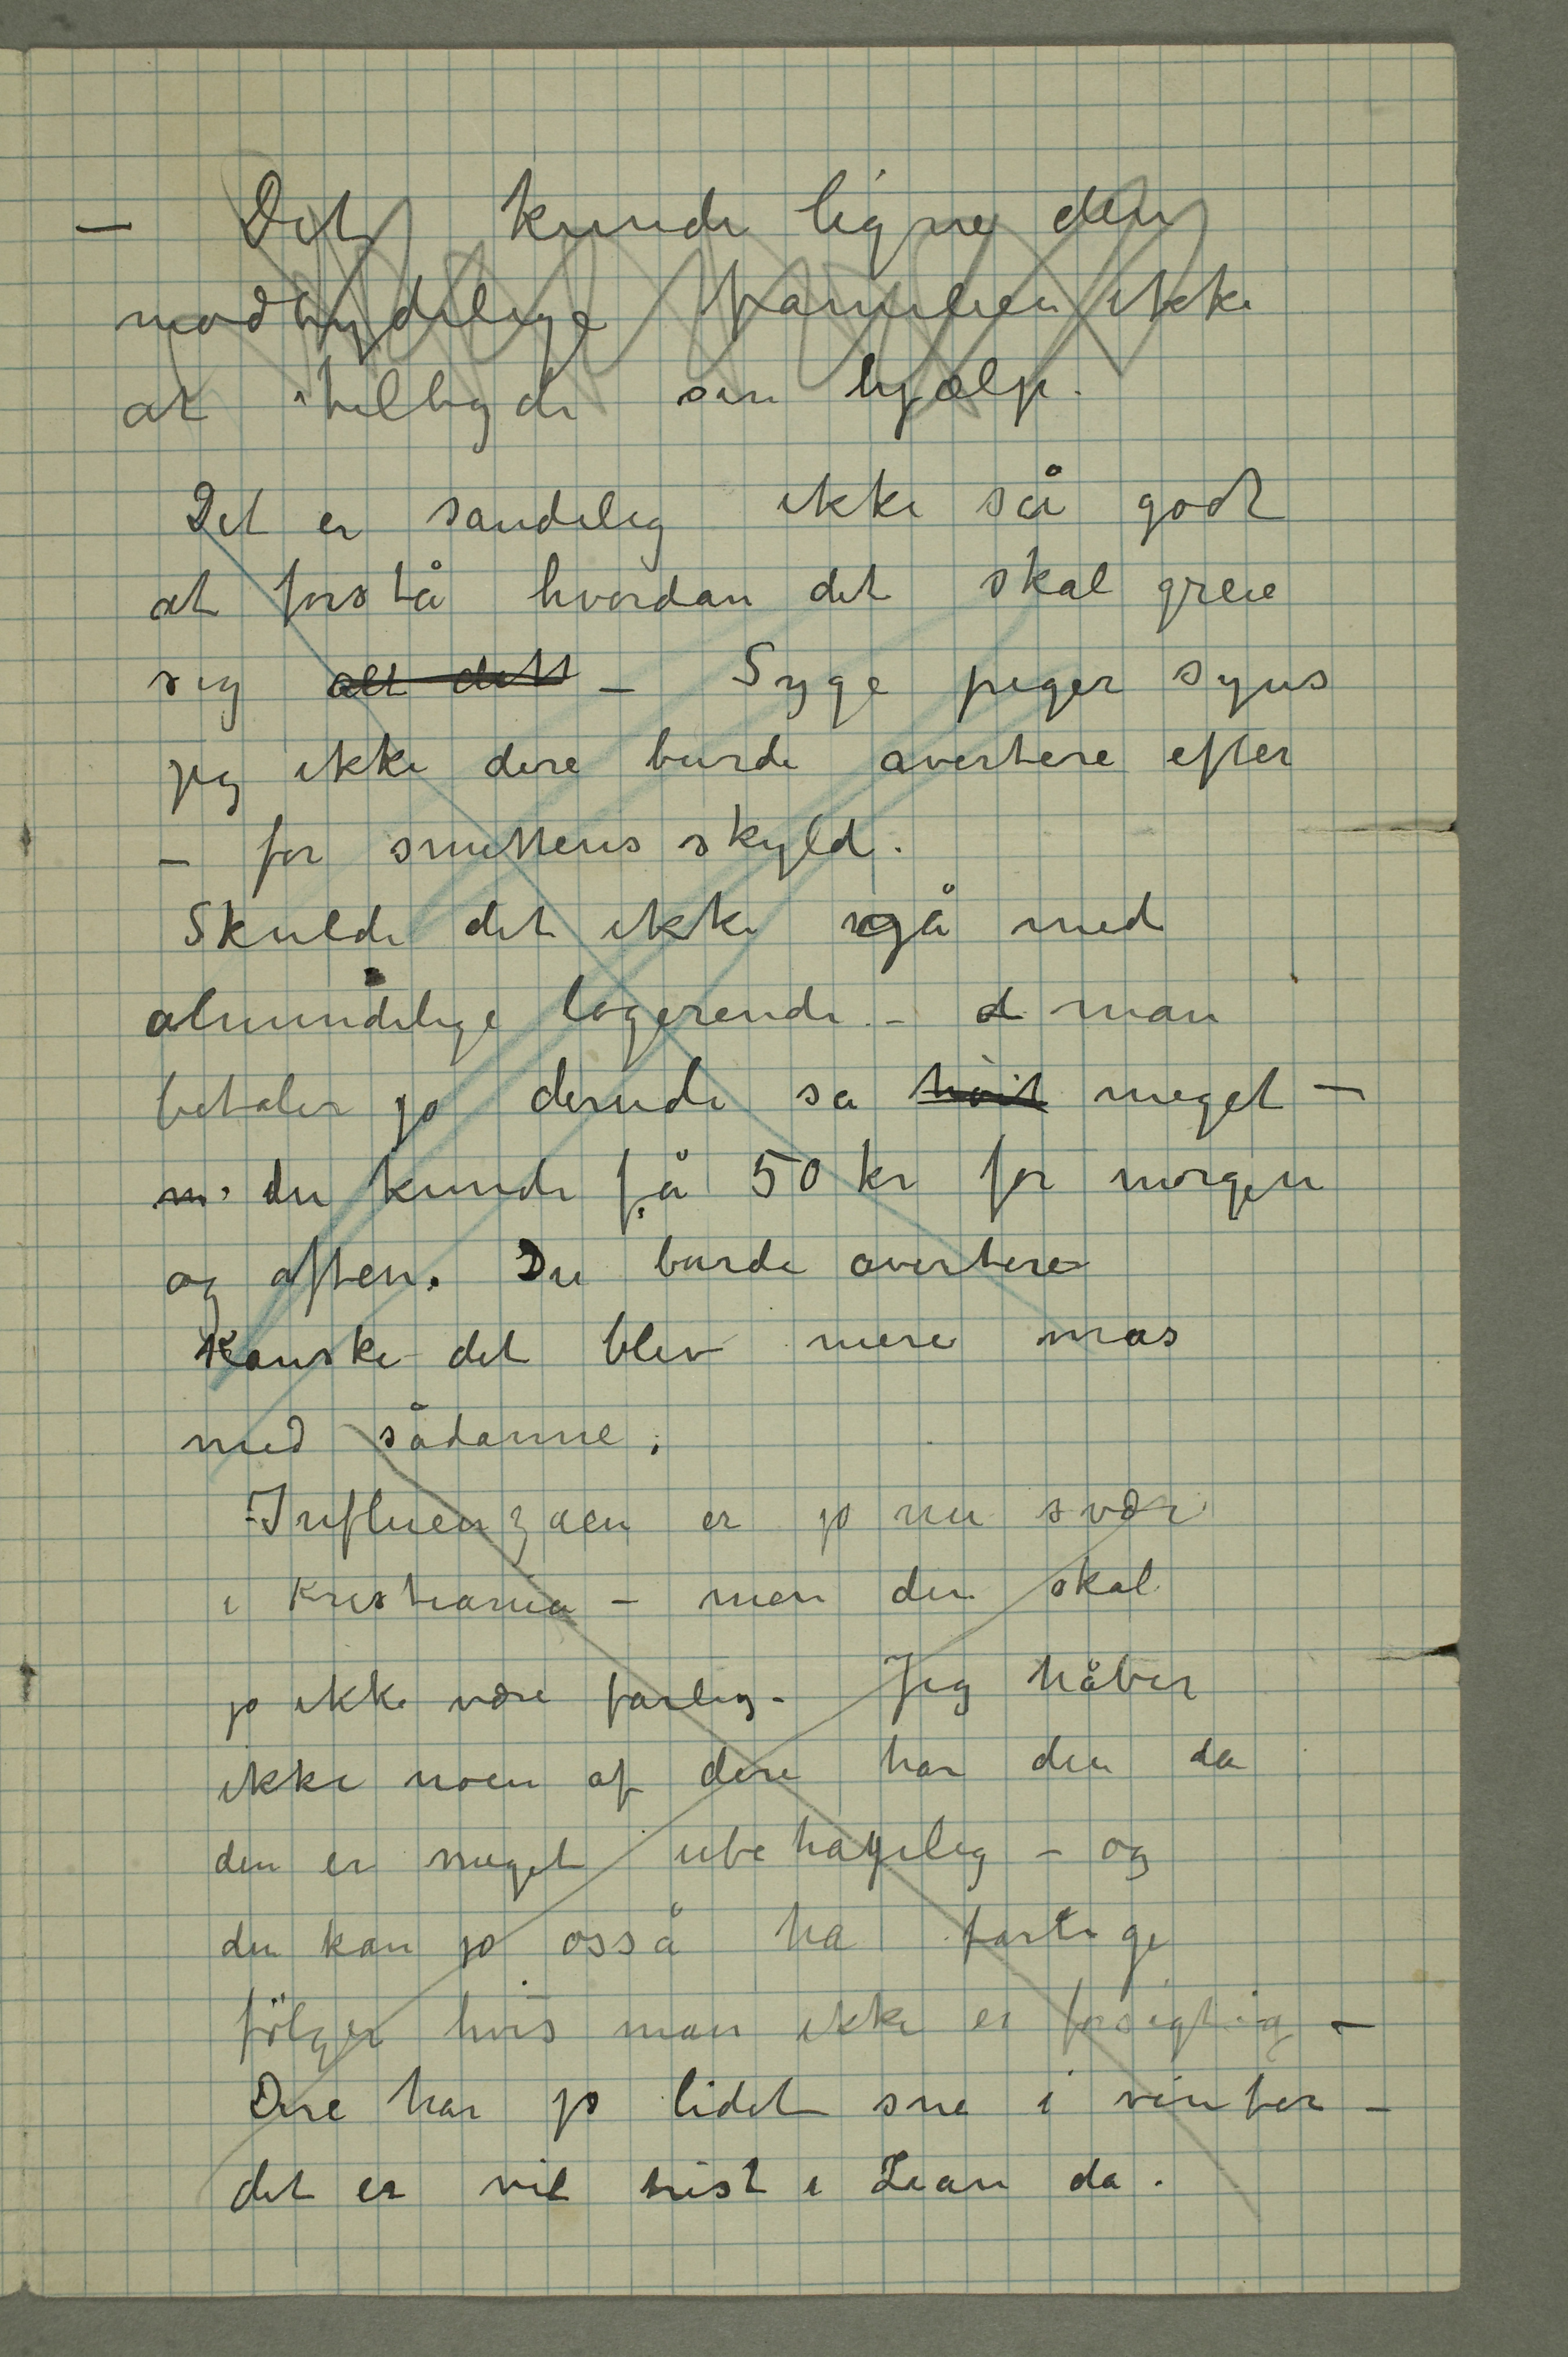 – Det kunde ligne den
modbydelige familien ikke
at tilbyde sin hjælp.
Det er sandelig ikke så godt
at forstå hvordan det skal greie
sig alt dett – Syge piger syns
jeg ikke dere burde avertere efter
– for smittens skyld.
Skulde det ikke gå med
almindelige logerende – d man
betaler jo derude sa høit meget –
m. du kunde få 50 kr for morgen
og aften. Du burde avertere
Kanske det blev mere mas
med sådanne.
Influenzaen er jo nu svær
i Kristiania – men den skal
jo ikke være farlig. Jeg håber
ikke noen af dere har den da
den er meget ubehagelig – og
den kan jo osså ha farlige
fölger hvis man ikke er forsigtig –
Dere har jo lidet sne i vinter –
det er vel trist i Lian da.